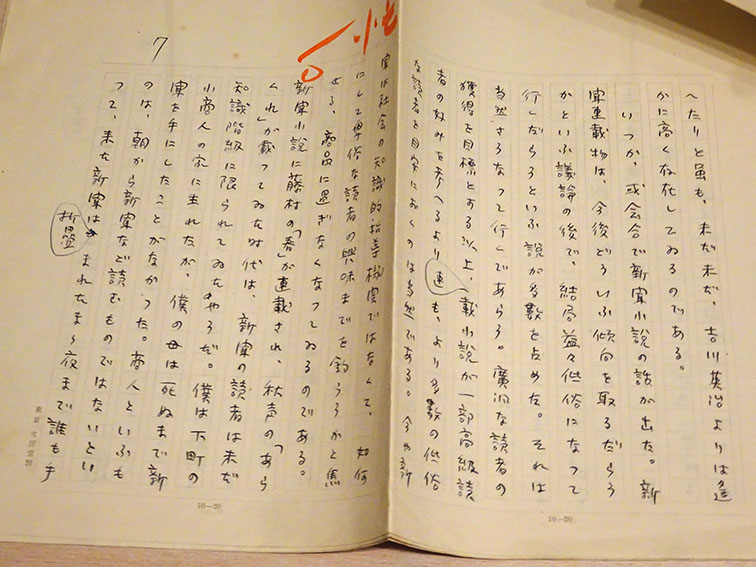 へたりと虽も、未だ未だ、吉川英治よりは遥
かに高く存在してゐるのである。
いつか、或会合で新聞小説の話が出た。新
聞連載物は、今後どういふ傾向を取るだらう
かといふ議論の後で、結局益々低俗になって
行くだらうといふ説が多数を占めた。それは
当然さうなって行くであらう。廣汎な読者の
獲得を目標とする以上、連載小説が一部高級読
者の好みを考へるよりも、より多数の低俗
な読者を目安におくのは当然である。今や新
聞は社会の知識的指導機関ではなくて、如何
にして卑俗な読者の興味までを釣らうかと焦
せる、商品に過ぎなくなつてゐるのである。
新聞小説に藤村の「春」が連載され、秋声の「あら
くれ」が載つてゐた時代は、新聞の読者は未だ
知識階級に限られてゐたやうだ。僕は下町の
小商人の家に生れたが、僕の母は死ぬまで新
聞を手にしたことがなかつた。商人といふも
のは、朝から新聞など読むものではないとい
つて、来た新聞は折畳まれたまゝ夜まで誰も手
7
10—20
10—20